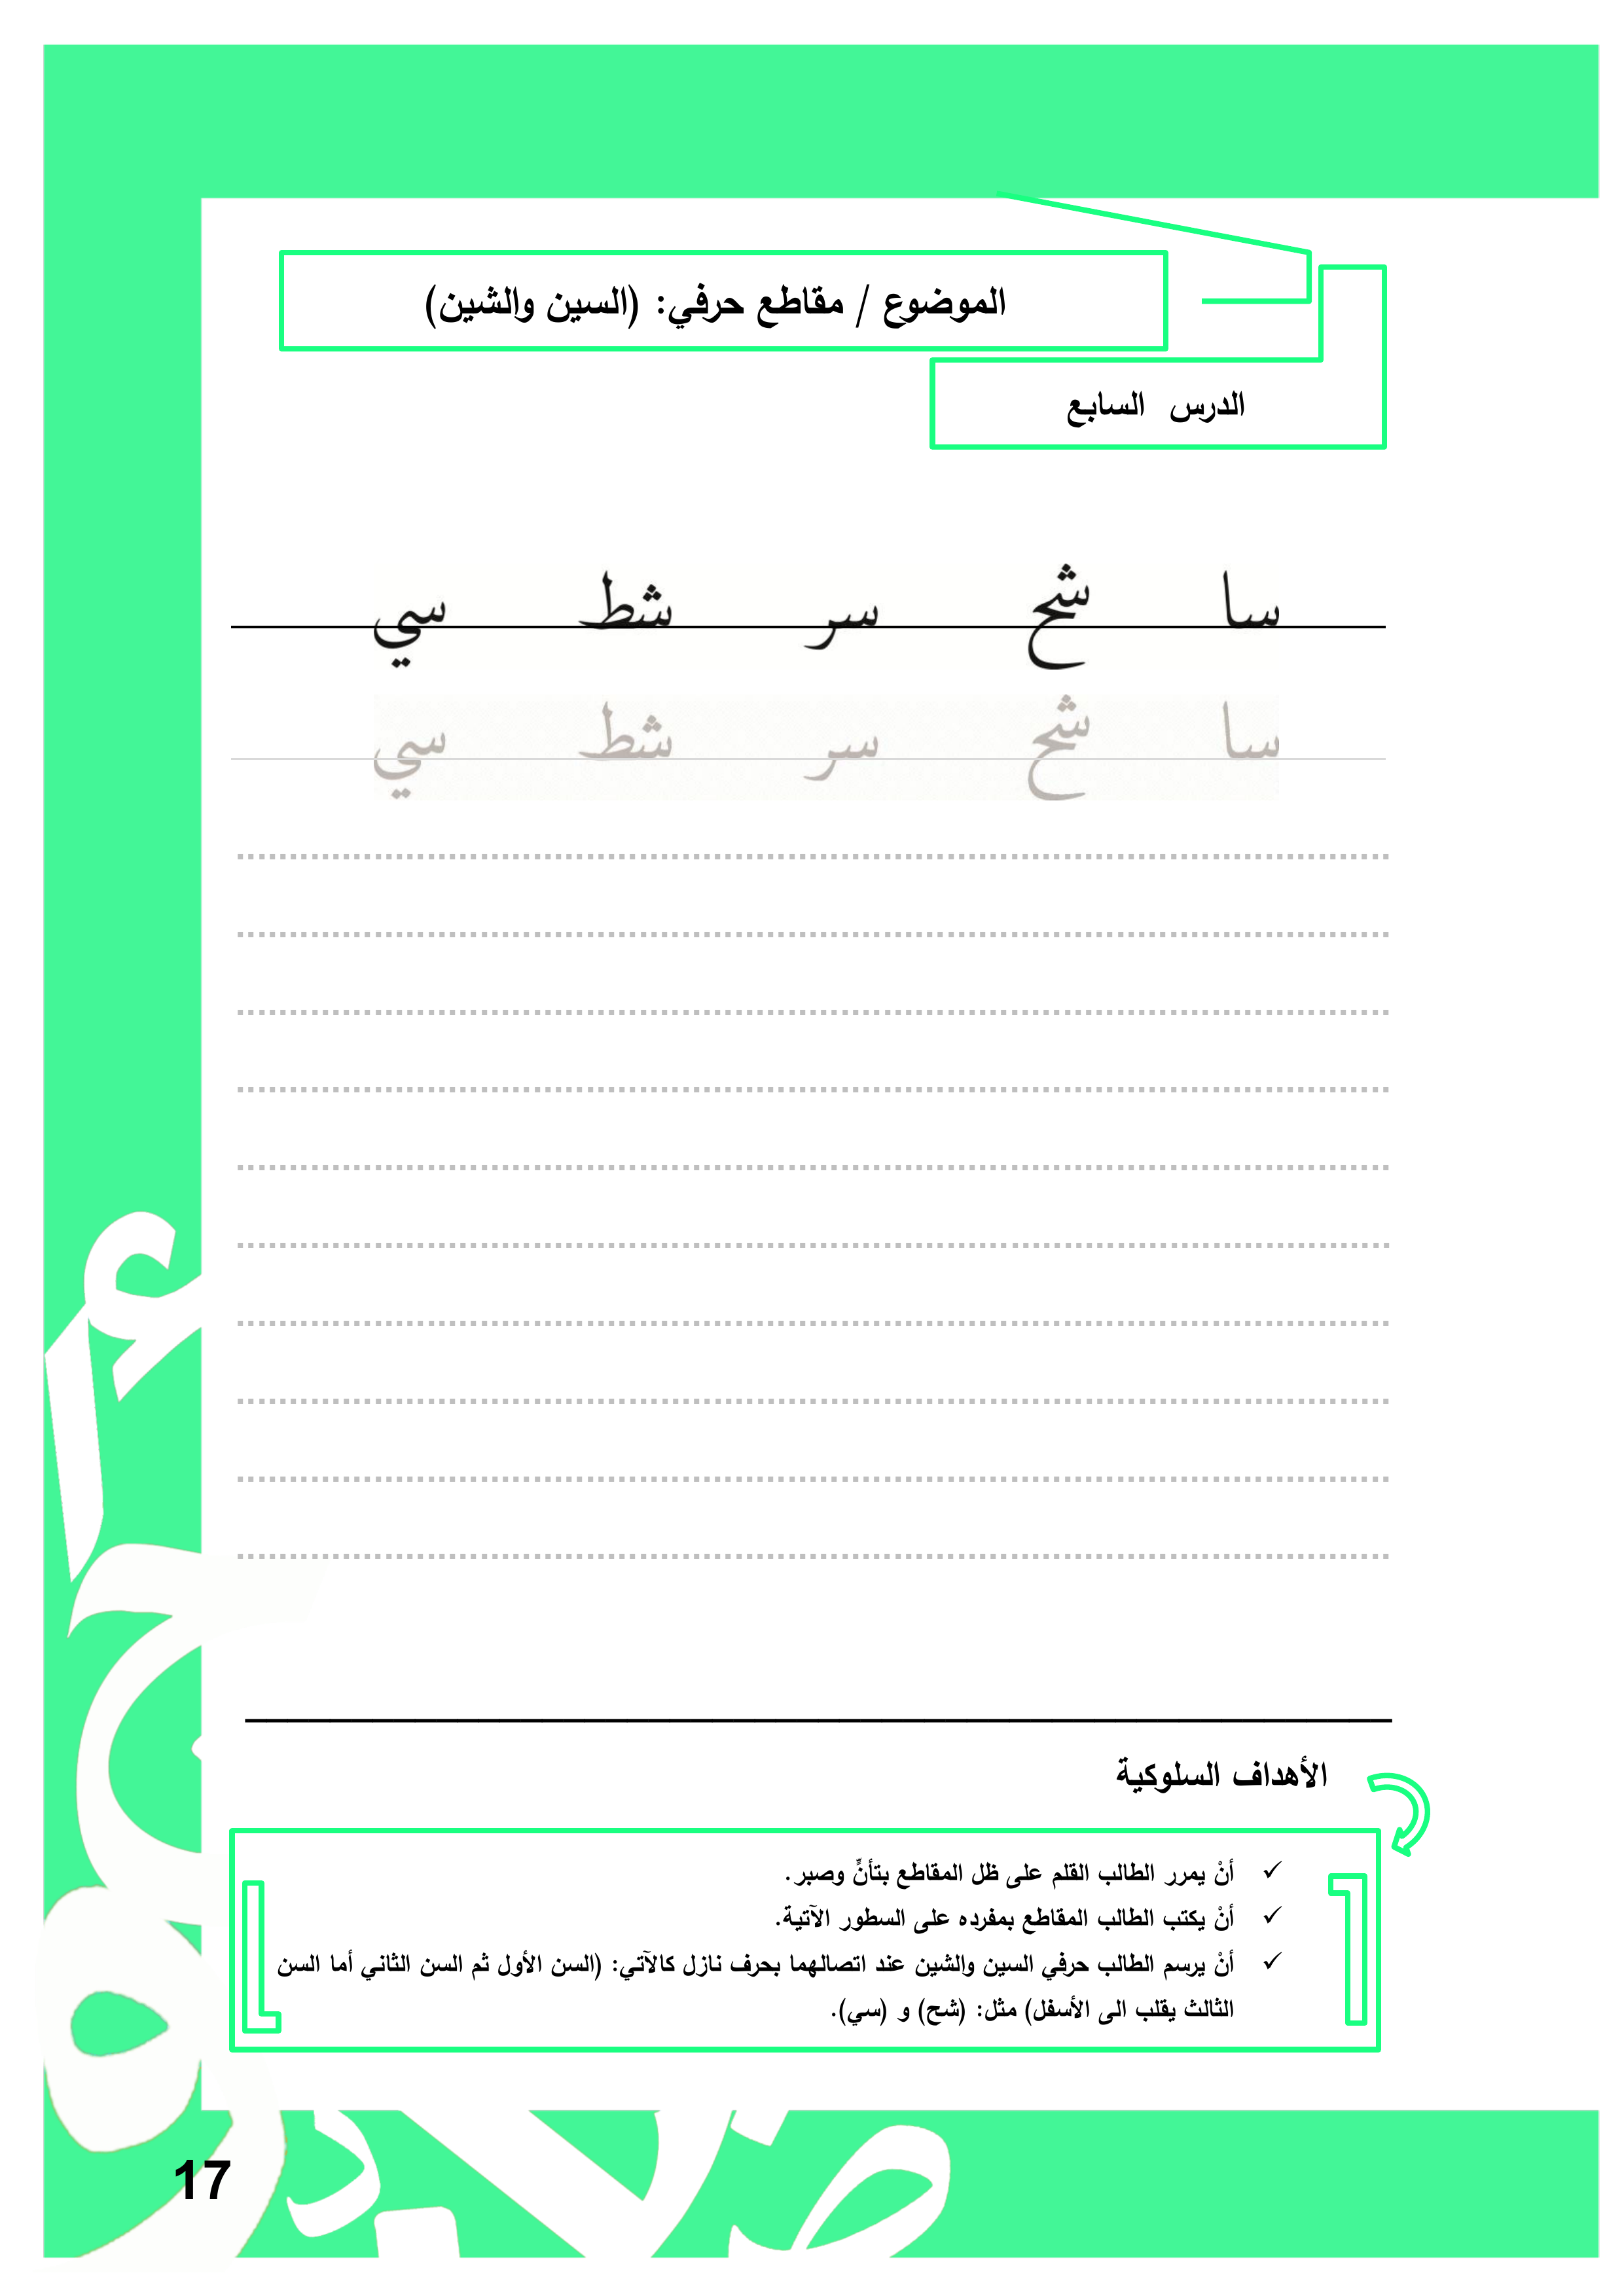 الموضوع / مقاطع حرفي: (السين والشين)
الدرس السابع
سا شح سر شط سي
سا شح سر شط سي
الأهداف السلوكية
✓ أنْ يمرر الطالب القلم على ظل المقاطع بتأنٍّ وصبر.
✓ أنْ يكتب الطالب المقاطع بمفرده على السطور الآتية.
✓ أنْ يرسم الطالب حرفي السين والشين عند اتصالهما بحرف نازل كالآتي: (السن الأول ثم السن الثاني أما السن
الثالث يقلب الى الأسفل) مثل: (شح) و (سي).
17